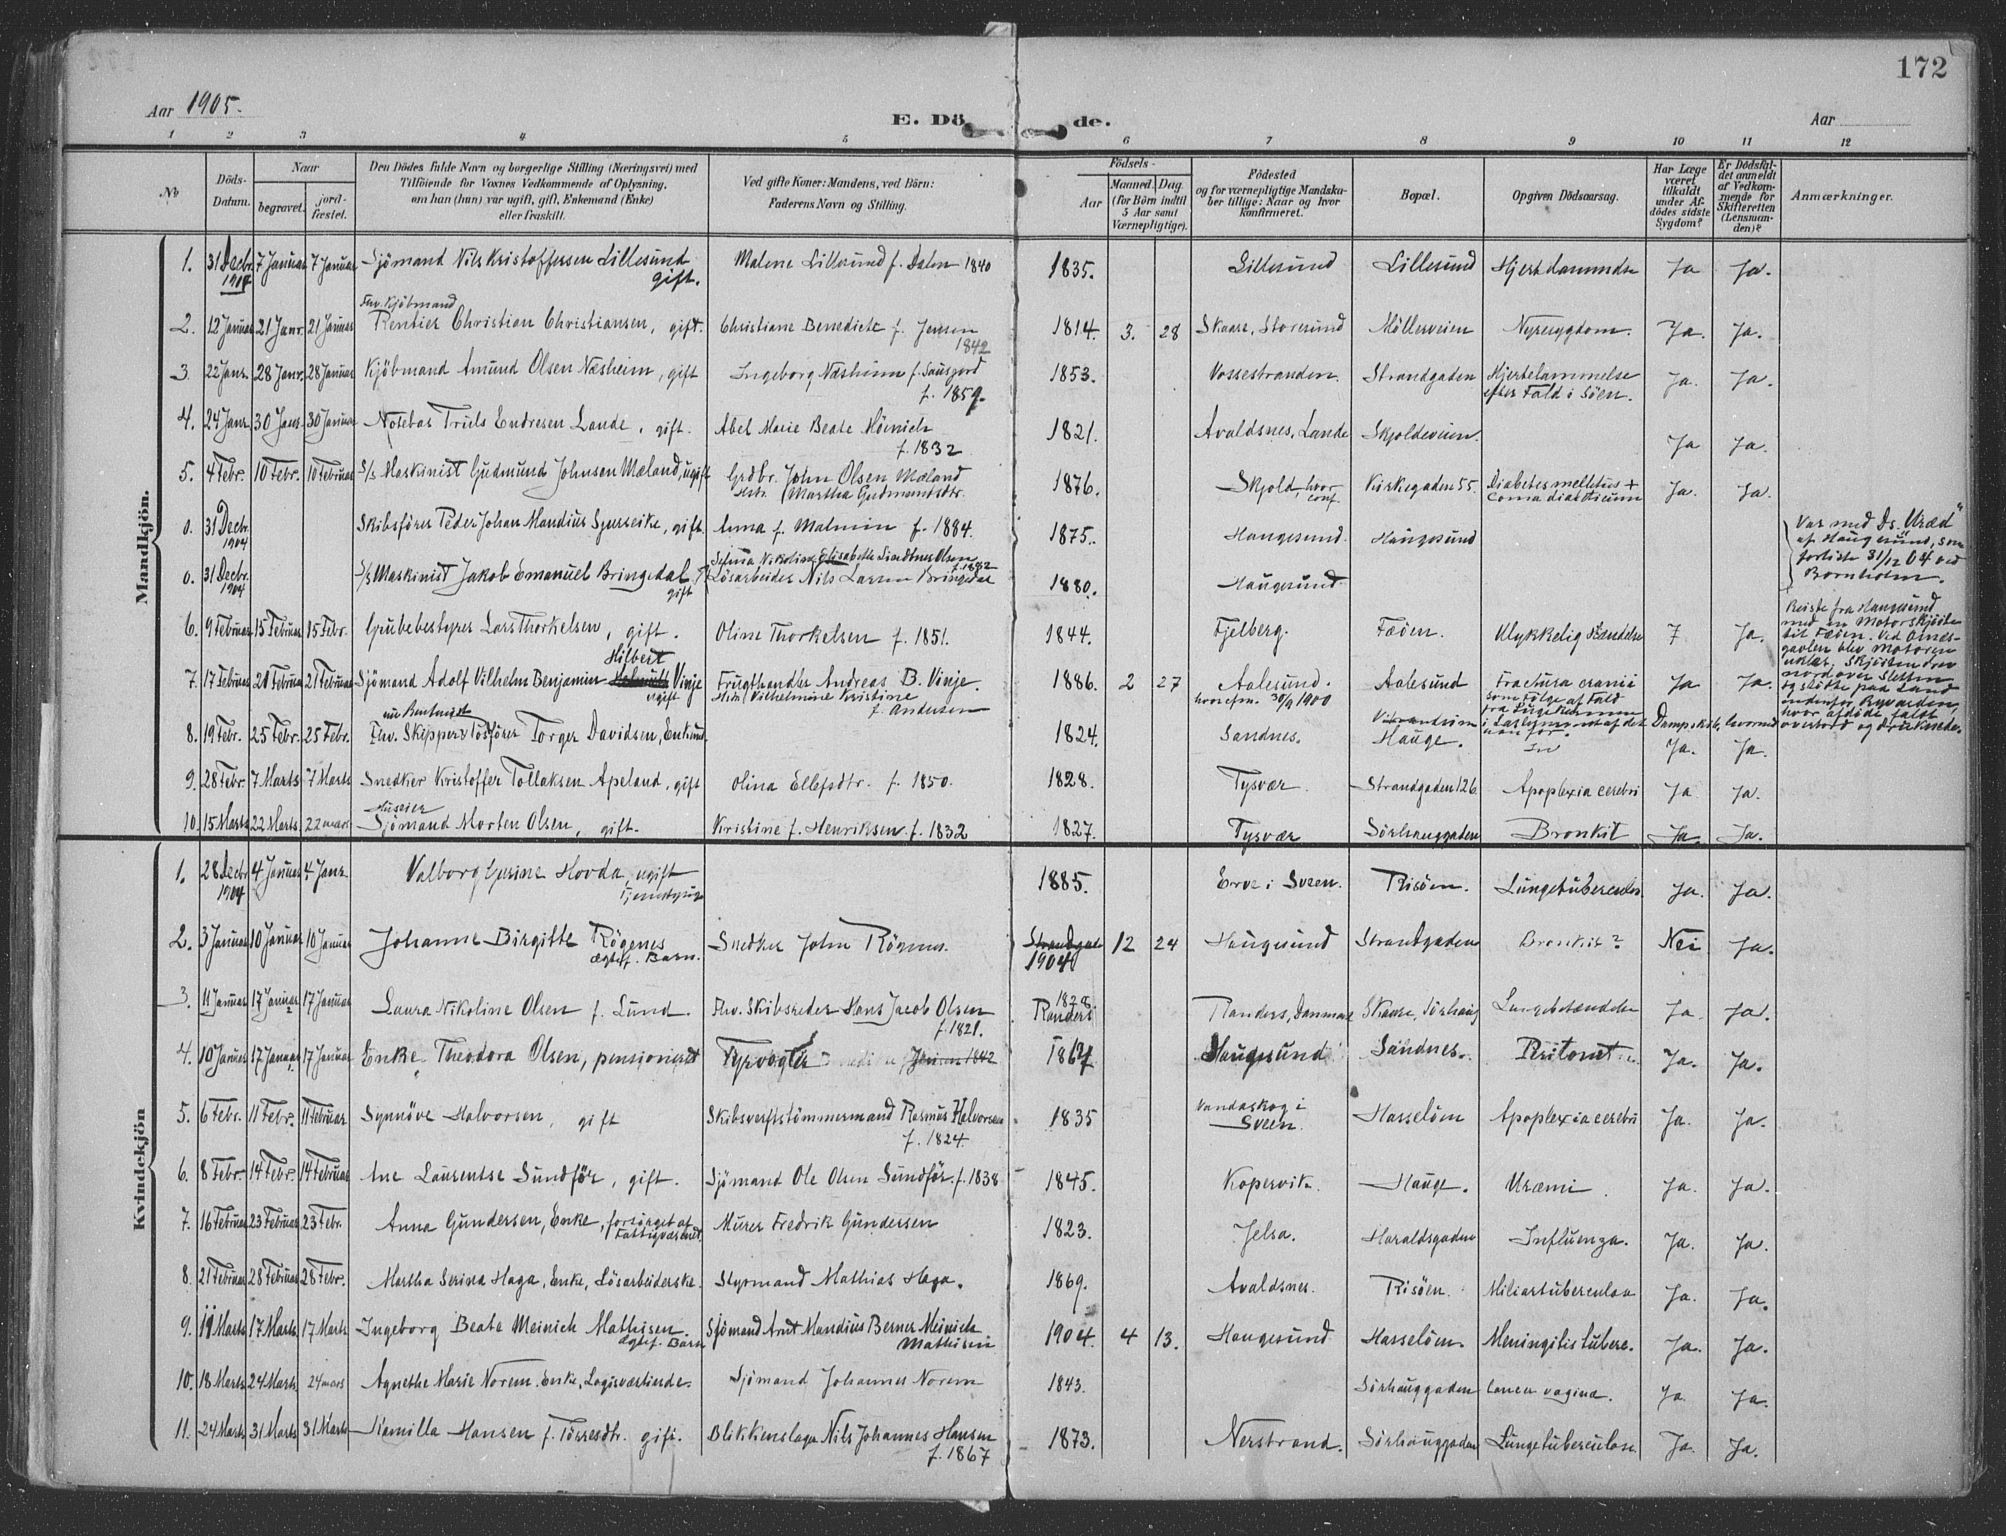 172
Aar 1905.
E. Döde.
Aar
1 2 3 4 5 6 7 8 9 10 11 12
No
Döds-Datum.
Naar
begravet.
jord-fæstet.
Den Dödes fulde Navn og borgerlige Stilling (Næringsvei) med Tilföiende for Voxnes Vedkommende af Oplysning, om han (hun) var ugift, gift, Enkemand (Enke) eller fraskilt.
Ved gifte Koner: Mandens, ved Börn: Faderens Navn og Stilling.
Födsels-
Aar
Maaned. Dag (for Börn indtil 5 Aar samt Værnepligtige).
Födested og for værnepligtige Mandskaber tillige: Naar og hvor konfirmeret.
Bopæl.
Opgiven Dödsaarsag.
Har Læge været tilkaldt under Afdödes sidste Sygdom?
Er Dödsfaldet anmeldt af Vedkommende for Skifteretten (Lensmanden)?
Anmærkninger.
Mandkjön.
1. 31 Decbr. 1904 7 Januar 7 Januar Sjömand Nils Kristoffersen Lillesund gift. Malene Lillesund f. Dalen 1840 1835. Lillesund Lillesund Ja Ja.
2. 12 Januar 21 Janr. 21 Januar Fhv. Kjöbmand Rentier Christian Christiansen, gift. Christiane Benedicte f. Jensen 1842 1814. 3. 28 Skaare, Storesund Möllerveien Nyresygdom. Ja. Ja.
3 22 Janr. 28 Janr. 28 Januar Kjöbmand Amund Olsen Næsheim, gift Ingeborg Næsheim f. f. 1859. 1853. Vossestranden. Strandgaden Hjertelammelse efter Fald i Söen. Ja. Ja.
4. 24 Janr 30 Janr 30 Januar Notebas Truls Endresen Lande, gift. Abel Marie Beate f. 1832 1821. Avaldsnes, Lande Skjoldeveien. Ja Ja.
5. 4 Febr. 10 Febr. 10 Februar S/s Maskinist Gudmund Johnsen Mæland, ugift Grdbr. John Olsen Mæland Martha Gudmundsdtr. 1876. Skjold, hvor conf. Kirkegaden 55. Diabetes melletus + coma diabeticum Ja. Ja.
0. 31 Decbr. 1904 Skibsförer Peder Johan Mandius, gift. Anna f. Malmin f. 1884. 1875. Haugesund. Haugesund Var med Ds. "Uræd" af Haugesund, som forliste 31/12 04 ved Bornholm.
0. 31 Decbr. 1904 S/s Maskinist Jakob Emanuel Bringedal gift Selma Nikoline Elisabethe Olsen f. 1882 Lösarbeider Nils Larsen Bringedal 1880. Haugesund.
6. 9 Februar 15 Februar 15 Febr. Grubebestyrer Lars Thorkelsen, gift. Oline Thorkelsen f. 1851. 1844. Fjelberg. Fæöen. Ulykkelig Hændelse ? Ja. Reiste fra Haugesund med en Motorskjöite til Fæöen. Ved gavlen blev Motoren uklar, Skjöiten drev nordover Sletten og stötte paa Land indenfor Ryvarden, hvor afdöde faldt overbord og druknede.
7. 17 Februar 21 Februar 21 Februar Sjömand Adolf Vilhelm Benjamin Hilbert Vinje ugift Frugthandler Andreas B. Vinje. Vilhelmine Kristine f. Andersen 1886. 2 27 Aalesund. hvor cfm. 30/9 1900 Aalesund Fractura cranii som Fölge af Fald fra Lugekarmen i Lasterummet Ja Ja.
8. 19 Febr. 25 Febr. 25 Febr. Fhv. Skipper Torger Davidsen, Enkem. 1824. Sandnes. Hauge. Ja. Ja.
9. 28 Febr. 7 Marts 7 Marts Snedker Kristoffer Tollaksen Apeland, gift Olina Ellefsdtr. f. 1850. 1828. Tysvær Strandgaden 126. Apoplexia cerebri Ja Ja.
10. 15 Marts 22 Marts 22 mars Huseier Sjömand Morten Olsen, gift. Kristine f. Henriksen f. 1832 1827. Tysvær Sörhauggaden Bronkit Ja. Ja.
Kvindekjön
1. 28 Decbr 1904 4 Januar 4 Janr Valborg Gurine Hovda, ugift 1885. i Sveen. Risöen. Lungetuberculos. Ja. Ja.
2. 3 Januar 10 Januar 10 Januar Johanne Birgitte Rögenes ægtef. Barn. Snedker John Rögenes. 1904 12 24 Haugesund Strandgaden Bronkit? Nei Ja.
3. 11 Januar 17 Januar 17 Januar Laura Nikoline Olsen f. Lund. Fhv. Skibsreder Hans Jacob Olsen f. 1821. 1828 Randers Randers, Danmark Skaare, Sörhaug Lungebetændelse Ja. Ja.
4. 10 Januar 17 Januar 17 Januar Enke Theodora Olsen, pensioneret Fyrvogter Haugesund Sandnes. Ja. Ja.
5. 6 Febr. 11 Febr. 11 Februar Synnöve Halvorsen, gift Skibsverftstömmermand Rasmus Halvorsen f. 1824. 1835 Vandaskog i Sveen. Hasselöen Apoplexia cerebri Ja. Ja.
6. 8 Febr. 14 Febr. 14 Februar Ane Laurentse Sundför, gift. Sjömand Ole Olsen Sundför f. 1838 1845. Kopervik. Hauge. Uræmi. Ja. Ja.
7. 16 Februar 23 Februar 23 Febr. Anna Gundersen, Enke, forsörget af Fattigvæsenet Murer Fredrik Gundersen 1823. Jelsa. Haraldsgaden Influenza. Ja. Ja.
8. 21 Februar 28 Februar 28 Febr. Martha Serina Haga, Enke, Lösarbeiderske. Styrmand Mathias Haga. 1869. Avaldsnes. Risöen. Miliartuberculose Ja. Ja.
9. 11 Marts 17 Marts 17 Marts Ingeborg Beate Meinich Mathisen ægtef. Barn Sjömand Arnt Mandius Berner Meinich Mathisen 1904. 4 13. Haugesund Hasselöen. Meningitis tuberc. Ja. Ja.
10. 18 Marts 24 Marts 24 mars Agnethe Marie Norem. Enke, Logisværtinde. Sjömand Johannes Norem 1843. Sörhauggaden Cancer vagina. Ja. Ja.
11. 24 Marts 31 Marts 31 Marts Kamilla Hansen f. Torresdtr. gift. Blikkenslager Nils Johannes Hansen f. 1867 1873. Nerstrand. Sörhauggaden Lungetuberculose Ja. Ja.